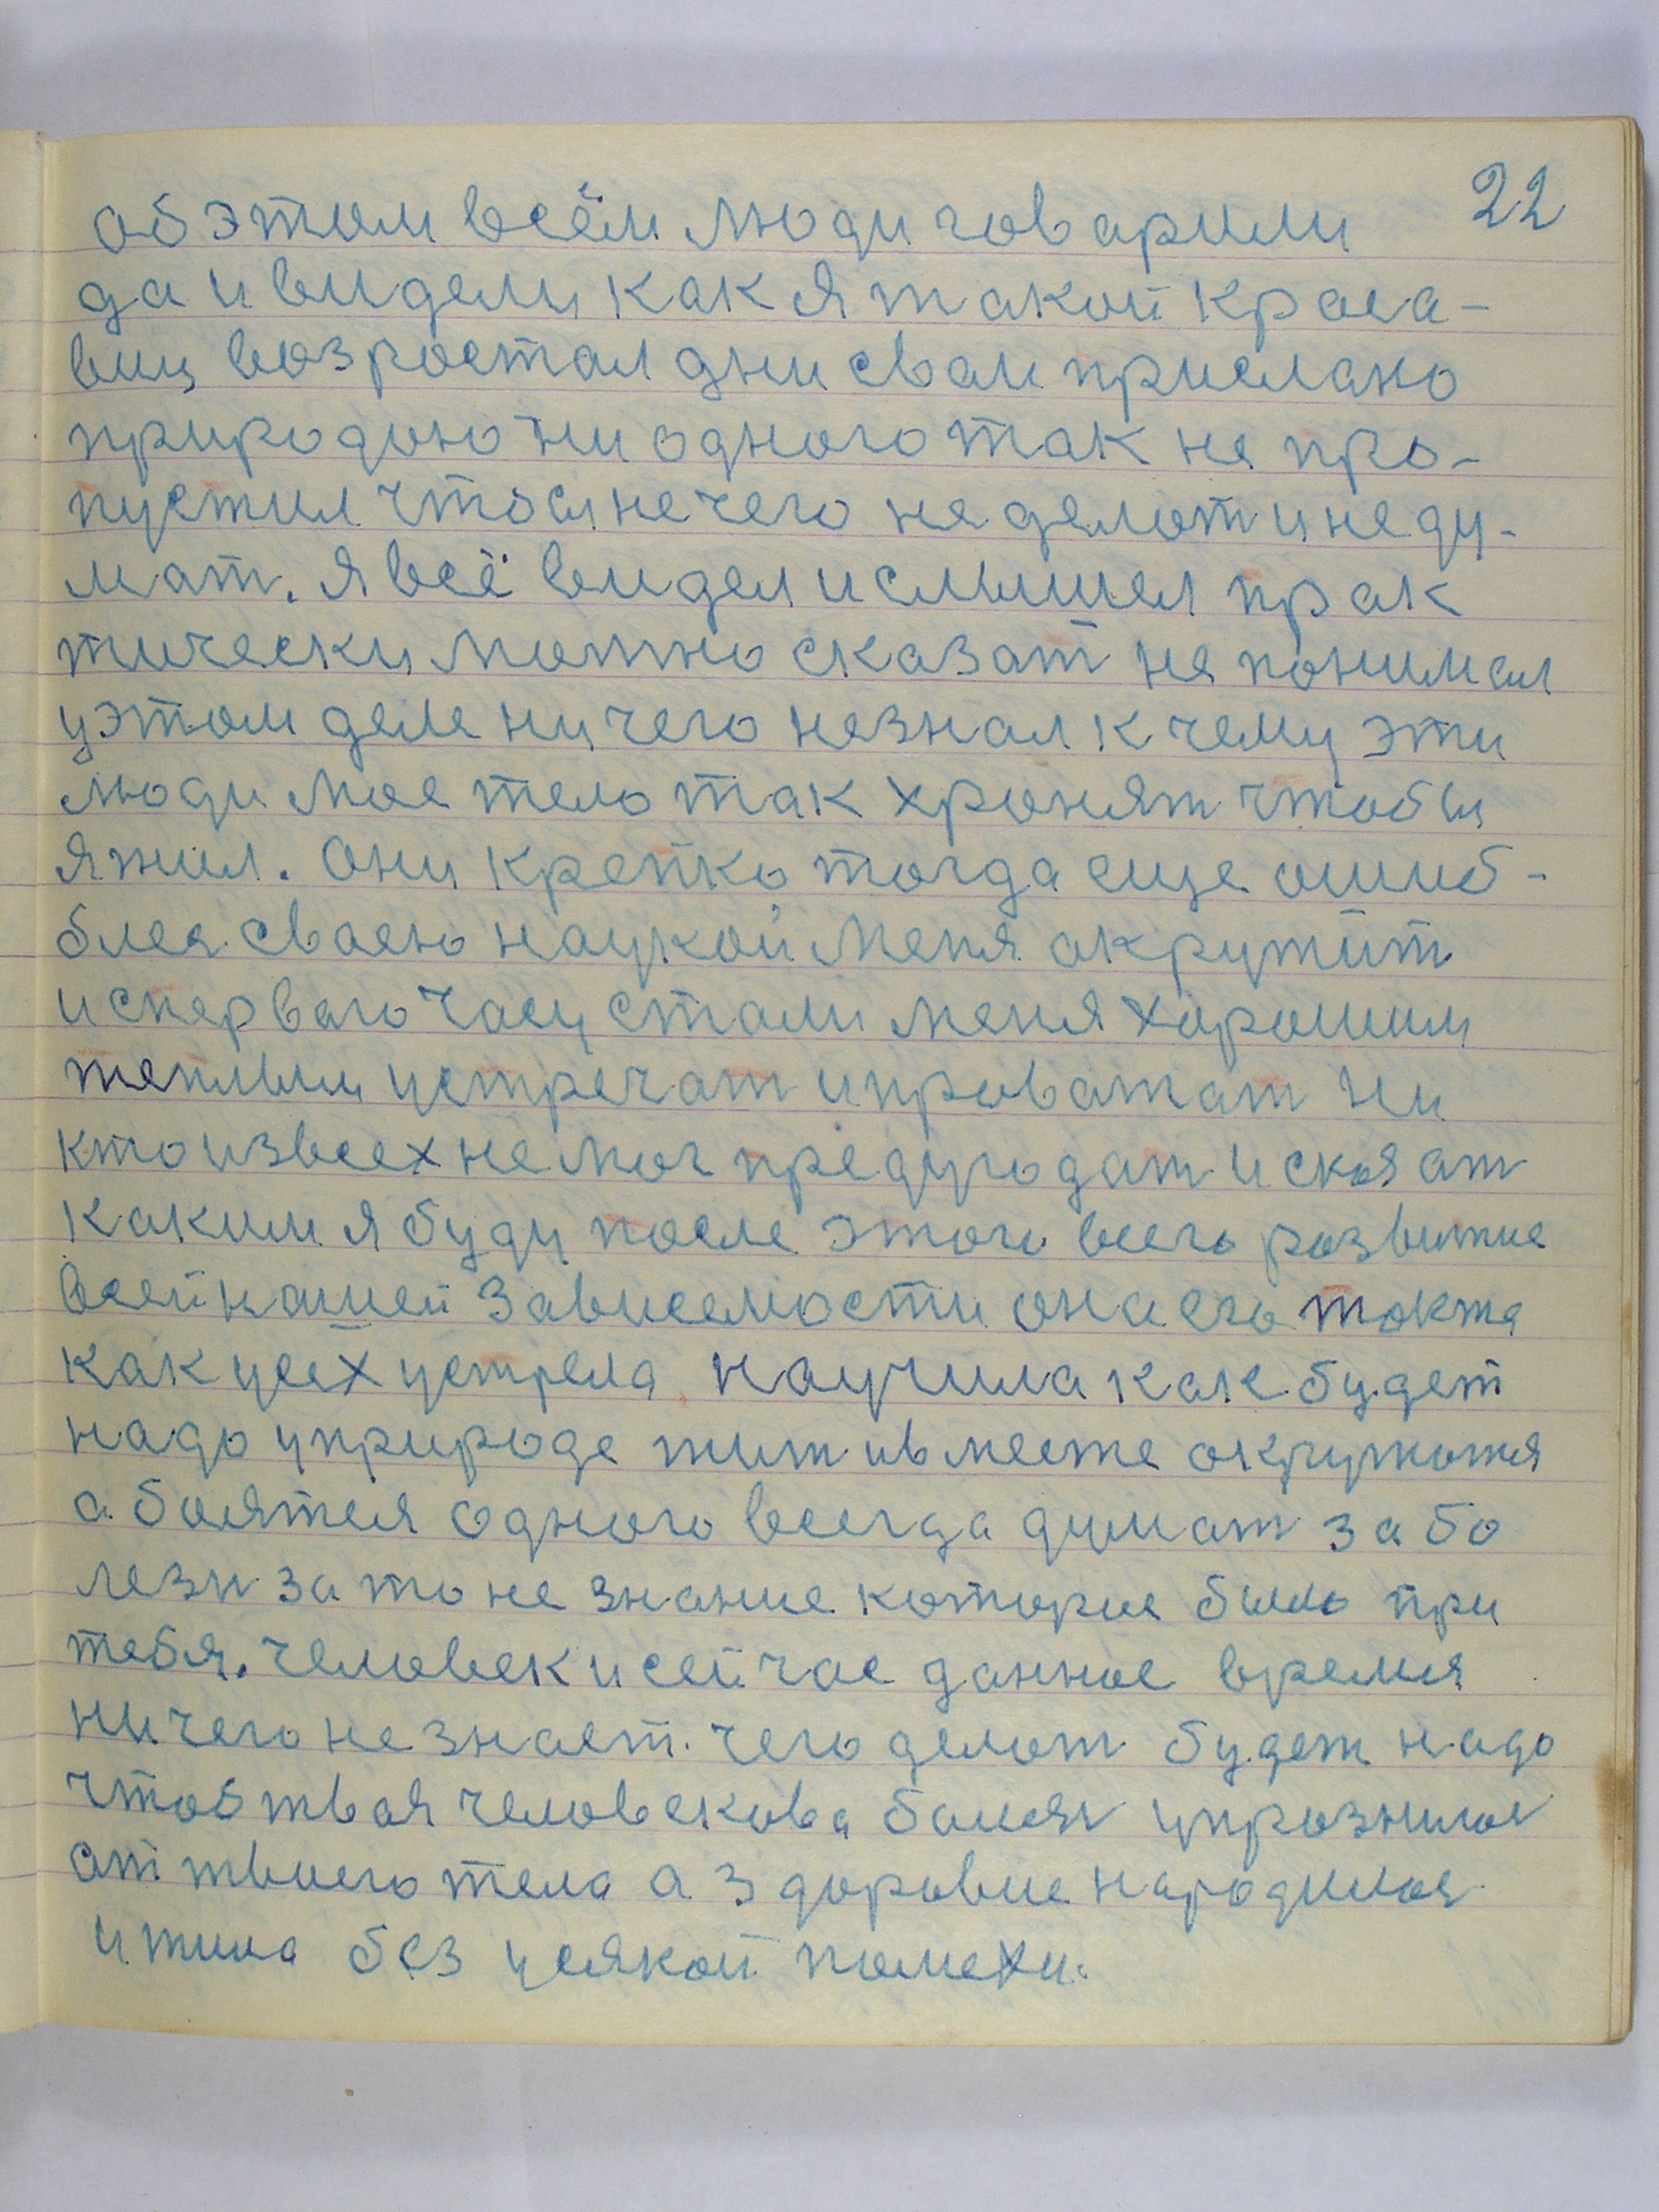 22
об этом всём люди говарили
да и видели как я такой краса-
виц возростал дни сваи прислано
природою ни одного так не про-
пустил чтоб нечего не делат и не ду-
мат. я всё видел и слышел прак
тически можно сказат не понимал
у этом деле ничего незнал к чему эти
люди мое тело так хронят чтобы
я жил. Они крепко тогда еще ошиб-
блея сваею наукой меня акружит
и сперваго часу стали меня хорошим
теплым устречат и проважат ни
кто из всех не мог предугодат и скязат
каким я буду после этого всего розвитие
всей нашей зависемости она его также
как усех устрела научила как будет
надо у природе жит и в месте окружатся
а боятся одного всегда думат за бо
лезн за то не знание которие было при
тебя. человек и сейчас данное время
ничего не знает. чего делат будет надо
чтоб твая человекова болезн упрознилас
ат твоего тела а здоровие народилос
и жила без усякой помехи.